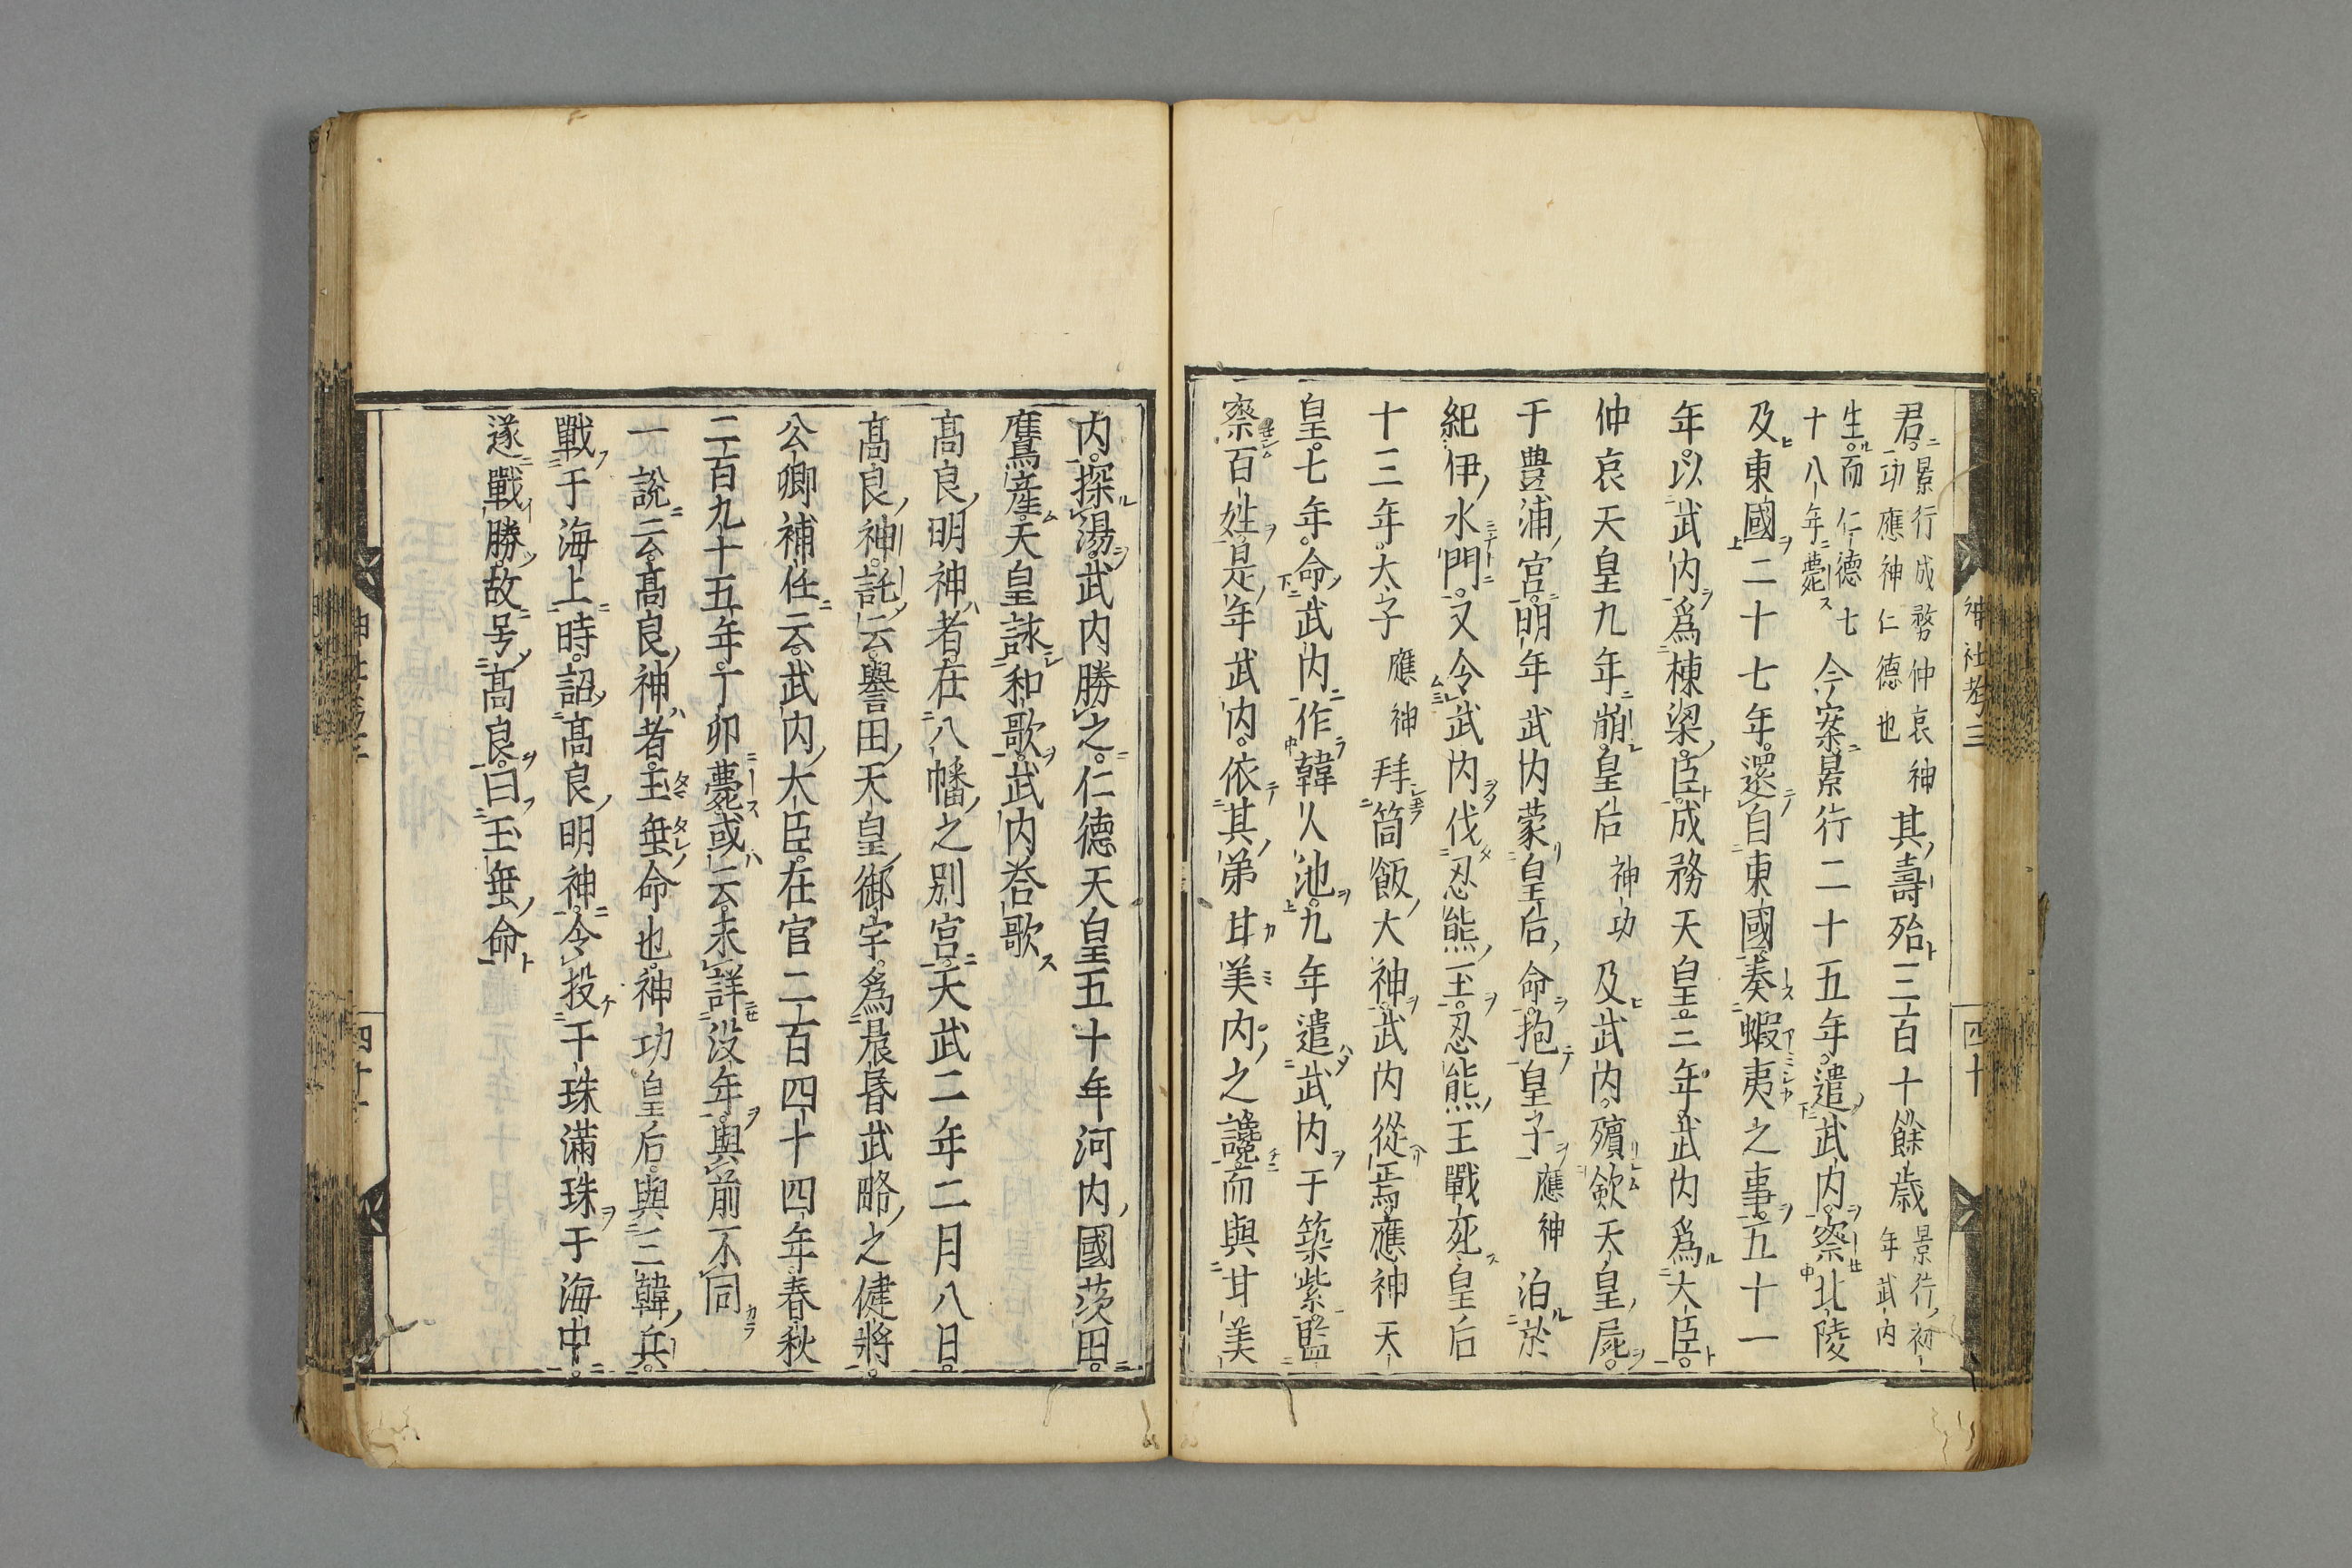 君景行成務仲哀神功應神仁德也其壽殆三百十餘歳景行初年武内
生而仁德七十八年薨今案景行二十五年遣武内察北陵
及東國二十七年還自東國奏蝦夷之事五十一
年以武内爲棟梁臣成務天皇三年武内爲大臣
仲哀天皇九年崩皇后神功及武内殯歛天皇屍
于豊浦宮明年武内蒙皇后命抱皇子應神泊於
紀伊水門又令武内伐忍熊王忍熊王戰死皇后
十三年太子應神拜筒飯大神武内從焉應神天
皇七年命武内作韓人池九年遣武内于築紫監
察百姓是年武内依其弟甘美内之讒而與甘美
神社考三
四十
内探湯武内勝之仁德天皇五十年河内國茨田
鴈産天皇詠和歌武内荅歌
髙良明神者在八幡之別宮天武二年二月八日
髙良神託云譽田天皇御宇爲晨昏武略之健將
公卿補任云武内大臣在官二百四十四年春秋
二百九十五年丁卯薨或云未詳没年與前不同
一說云髙良神者玉垂命也神功皇后與三韓兵
戰于海上時詔髙良明神令投干珠滿珠于海中
遂戰勝故号髙良曰玉垂命